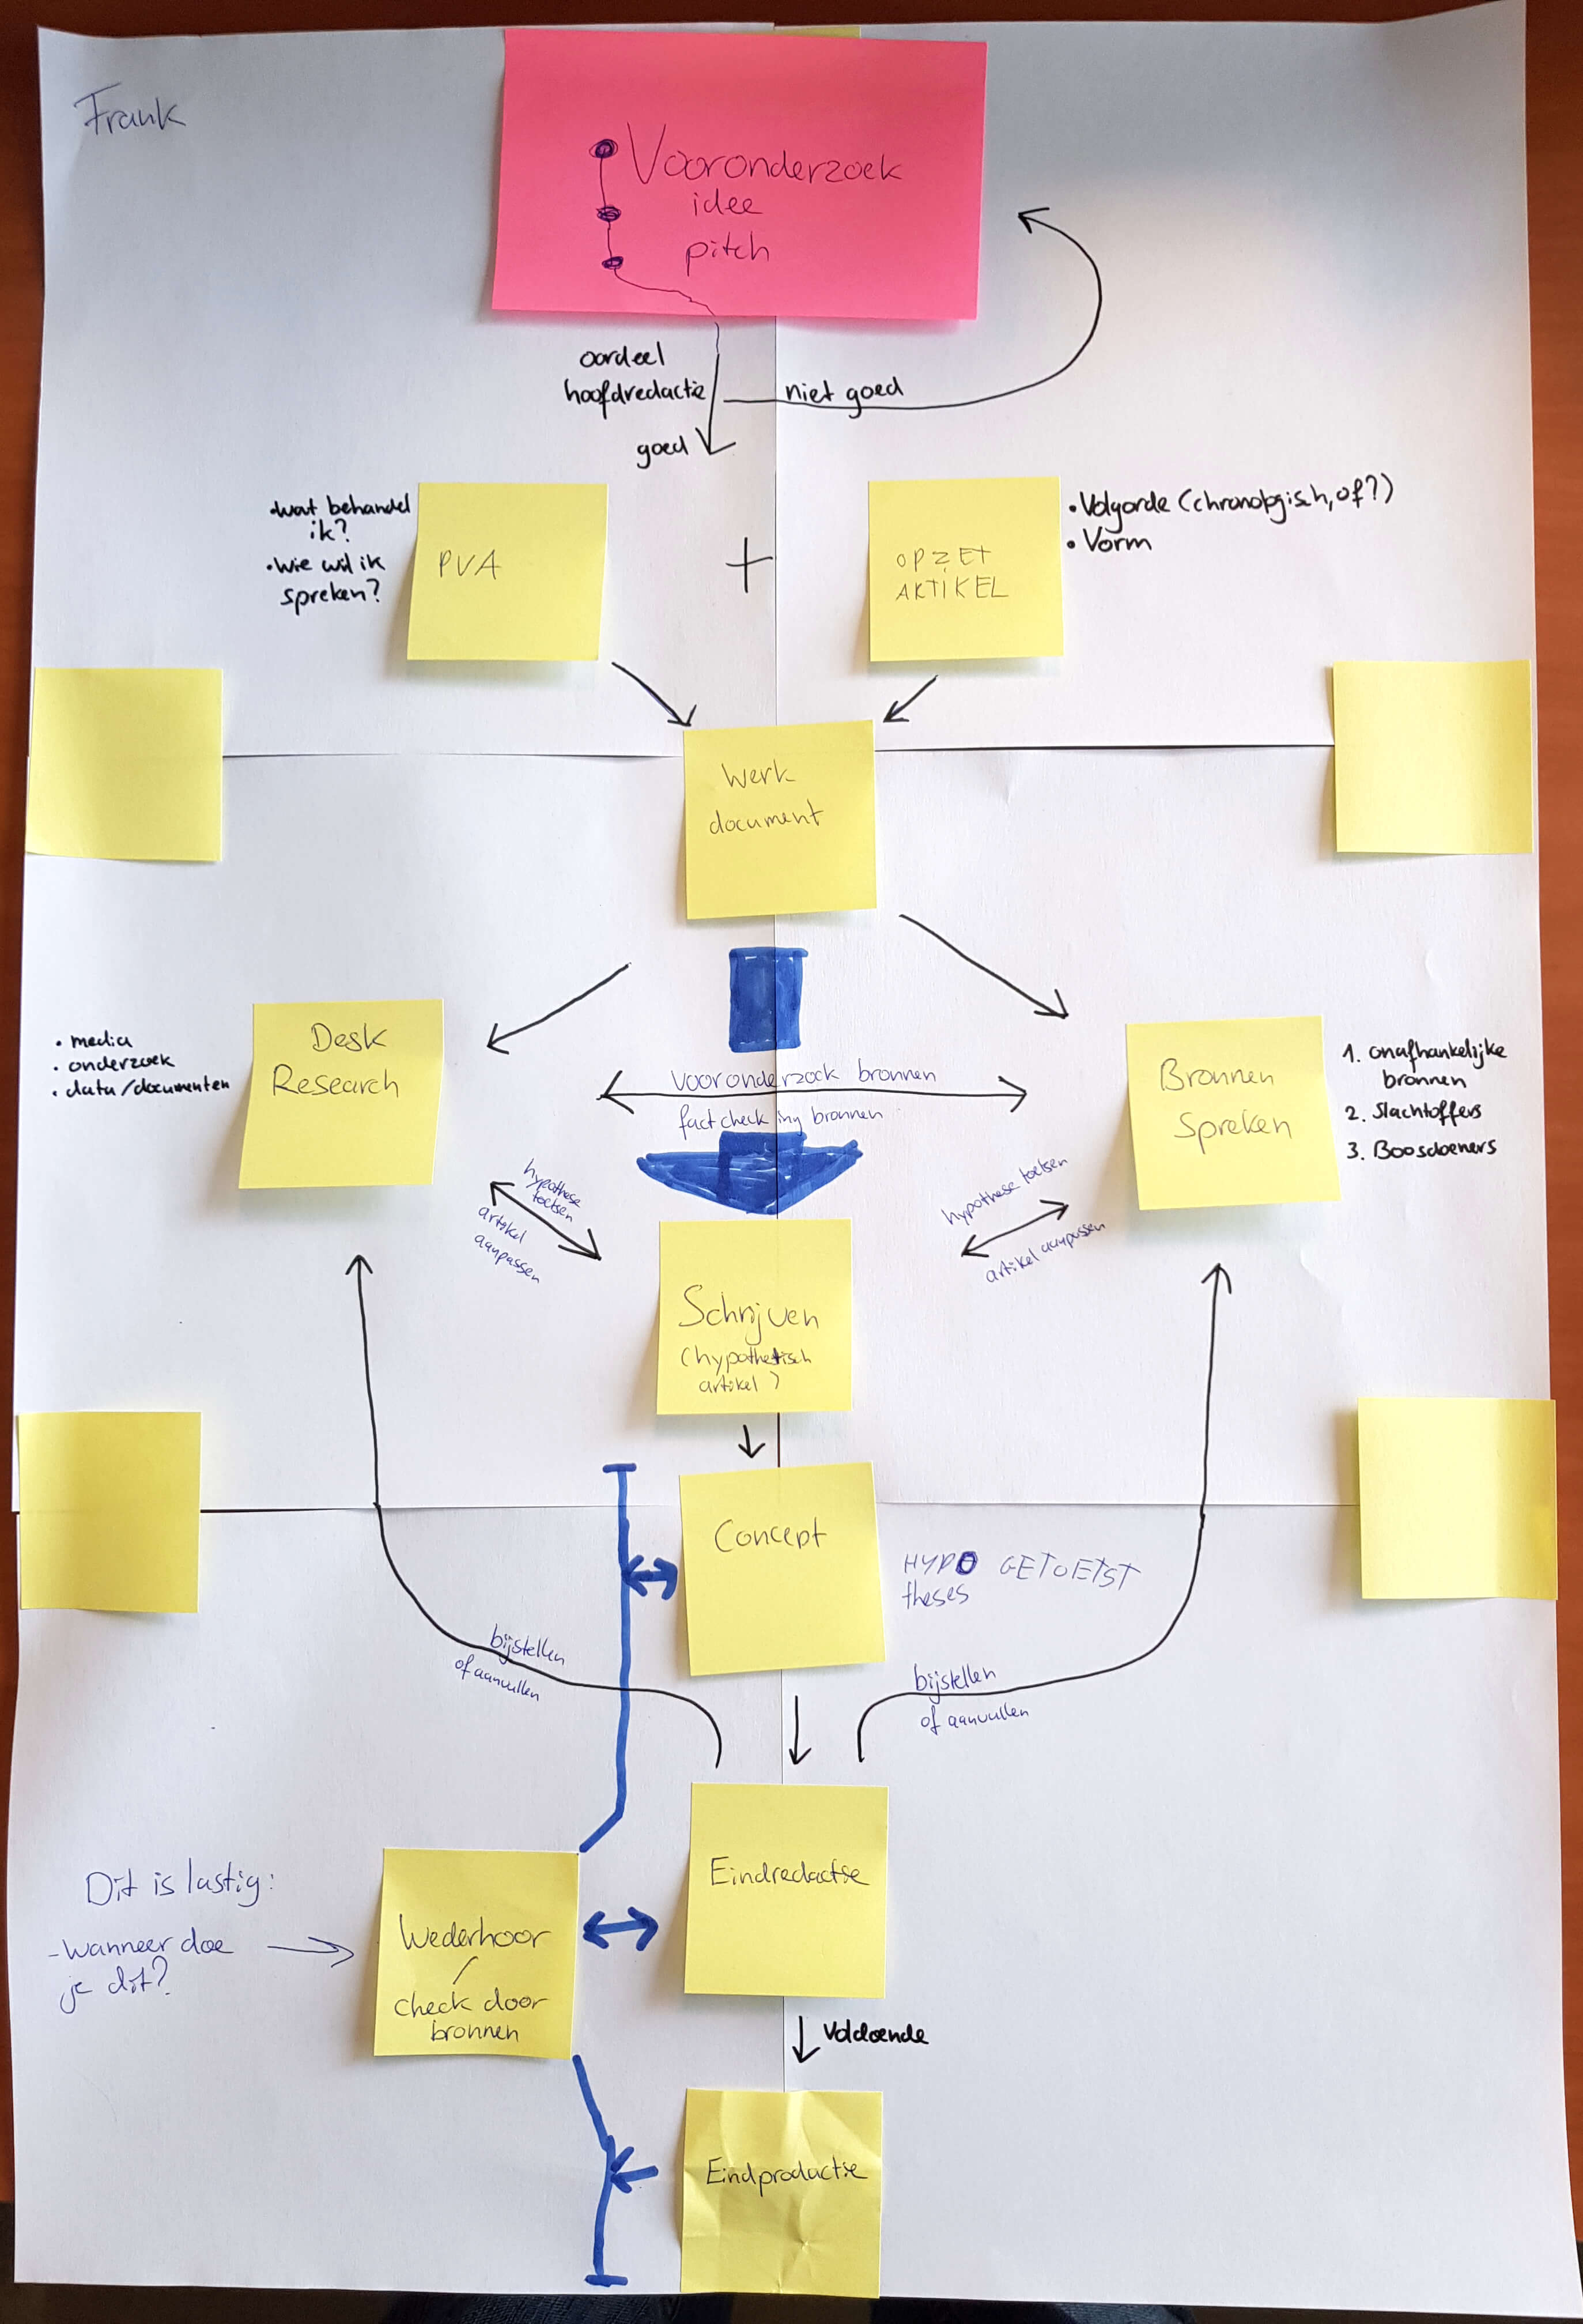 Frank
Vooronderzoek
idee
pitch
oordeel
hoofdredactie
niet goed
goed
•wat behandel
ik?
•Wie wil ik
spreken?
PVA
+
OPZET
ARTIKEL
• Volgorde (chronologisch, of?)
• Vorm
Werk
document
• media
• onderzoek
• data/documenten
Desk
Research
vooronderzoek bronnen
factchecking bronnen
Bronnen
Spreken
1. onafhankelijke
bronnen
2. Slachtoffers
3. Boosdoeners
hypothese
toetsen
artikel
aanpassen
hypothese toetsen
artikel aanpassen
Schrijven
(hypothetisch
artikel)
Concept
HYPO GETOETST
theses
bijstellen
of aanvullen
bijstellen
of aanvullen
Eindredactie
Dit is lastig:
-wanneer doe
je dit?
Wederhoor
/
check door
bronnen
Voldoende
Eindproductie